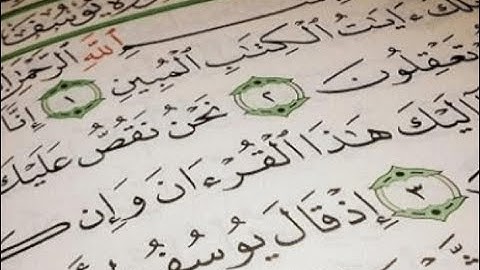 سورة يوسف
الله الرحمن
تلك ءايت الكتب المبين ١ إنا
تعقلون ٢ نحن نقص عليك
إليك هذا القرءان وإن ك
٣ إذ قال يوسف